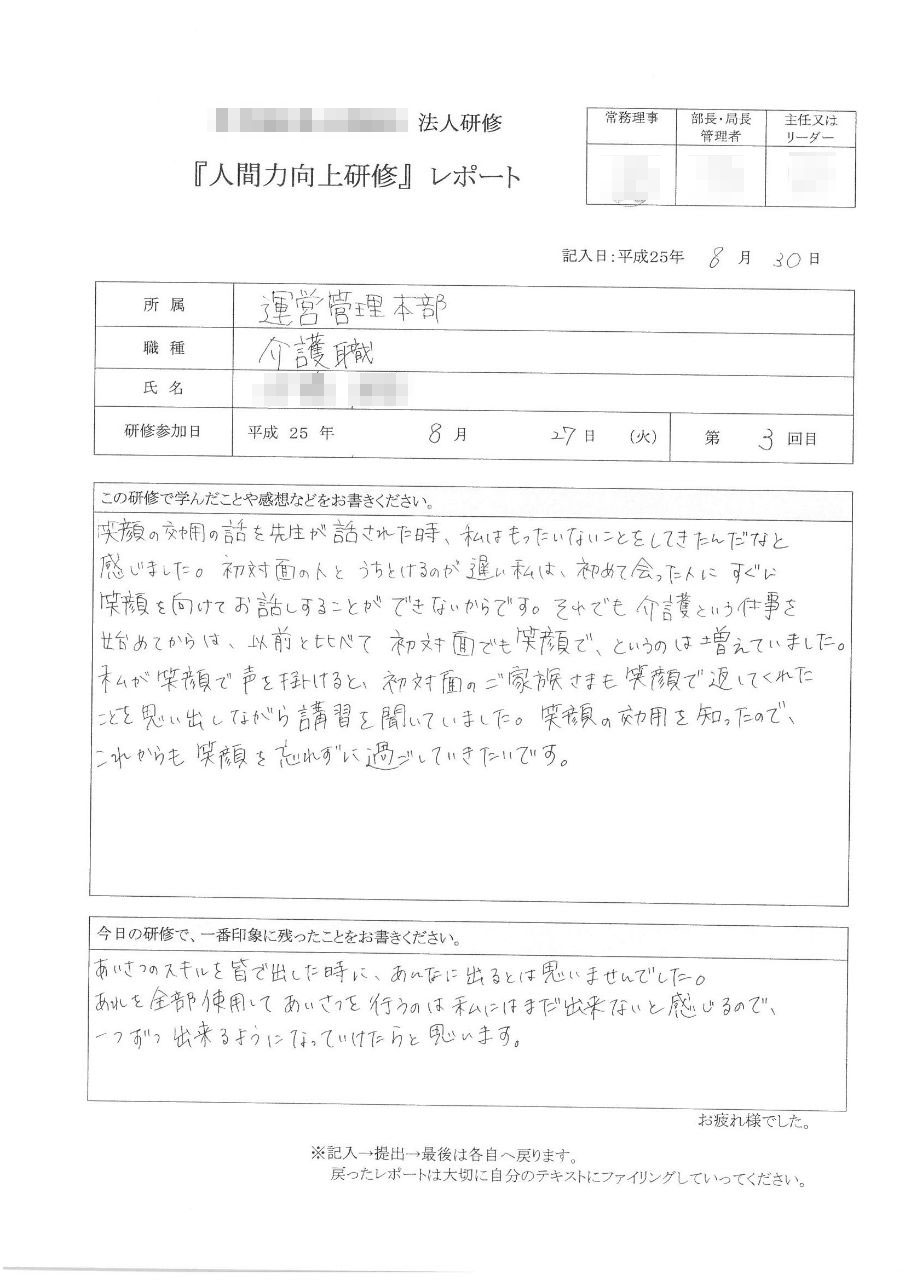 法人研修
『人間力向上研修』 レポート
常務理事
部長・局長
管理者
主任又は
リーダー
記入日：平成25年 8 月 30 日
所属 運営管理本部
職種 介護職
氏名
研修参加日 平成 25 年 8 月 27 日 (火) 第 3 回目
この研修で学んだことや感想などをお書きください。
笑顔の効用の話を先生が話された時、私はもったいないことをしてきたんだなと
感じました。初対面の人と うちとけるのが遅い私は、初めて会った人に すぐに
笑顔を向けてお話しすることが できないからです。それでも 介護という仕事を
始めてからは、以前と比べて 初対面でも笑顔で、というのは増えていました。
私が笑顔で声を掛けると、初対面のご家族さまも笑顔で返してくれた
ことを思い出しながら講習を聞いていました。笑顔の効用を知ったので、
これからも笑顔を忘れずに過ごしていきたいです。
今日の研修で、一番印象に残ったことをお書きください。
あいさつのスキルを皆で出した時に、あんなに出るとは思いませんでした。
あれを全部使用してあいさつを行うのは私にはまだ出来ないと感じるので、
一つずつ出来るようになっていけたらと思います。
お疲れ様でした。
※記入→提出→最後は各自へ戻ります。
戻ったレポートは大切に自分のテキストにファイリングしていってください。